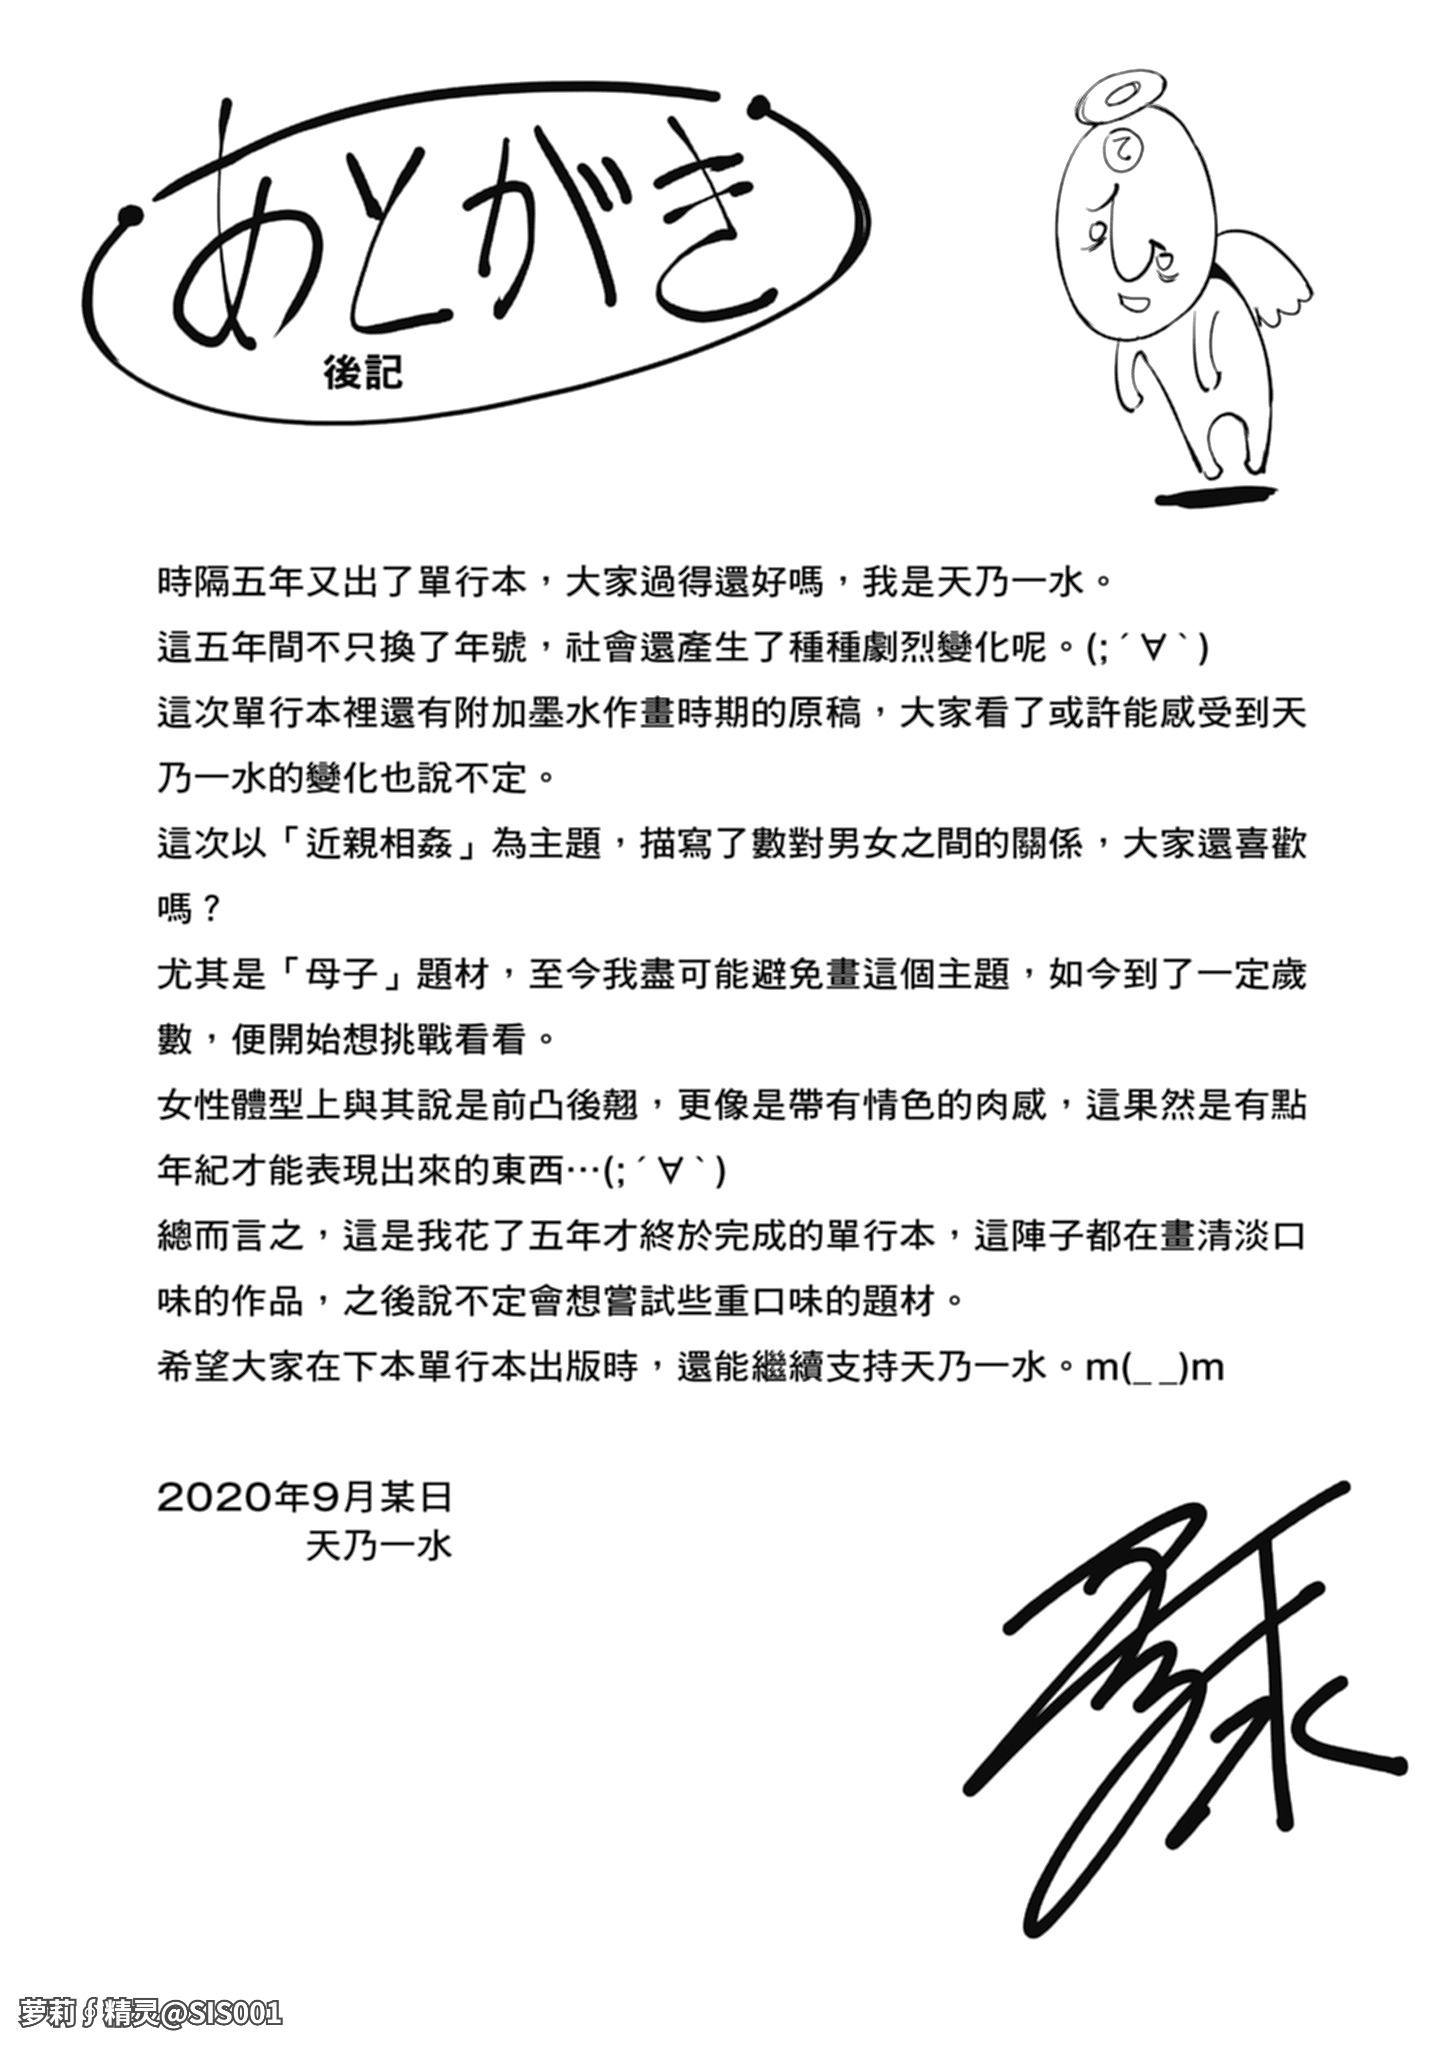 あとがき
後記
時隔五年又出了單行本，大家過得還好嗎，我是天乃一水。
這五年間不只換了年號，社會還產生了種種劇烈變化呢。(;´∀｀)
這次單行本裡還有附加墨水作畫時期的原稿，大家看了或許能感受到天
乃一水的變化也說不定。
這次以「近親相姦」為主題，描寫了數對男女之間的關係，大家還喜歡
嗎？
尤其是「母子」題材，至今我盡可能避免畫這個主題，如今到了一定歲
數，便開始想挑戰看看。
女性體型上與其說是前凸後翹，更像是帶有情色的肉感，這果然是有點
年紀才能表現出來的東西…(;´∀｀)
總而言之，這是我花了五年才終於完成的單行本，這陣子都在畫清淡口
味的作品，之後說不定會想嘗試些重口味的題材。
希望大家在下本單行本出版時，還能繼續支持天乃一水。m(_ _)m
2020年9月某日
天乃一水
萝莉∮精灵@SIS001